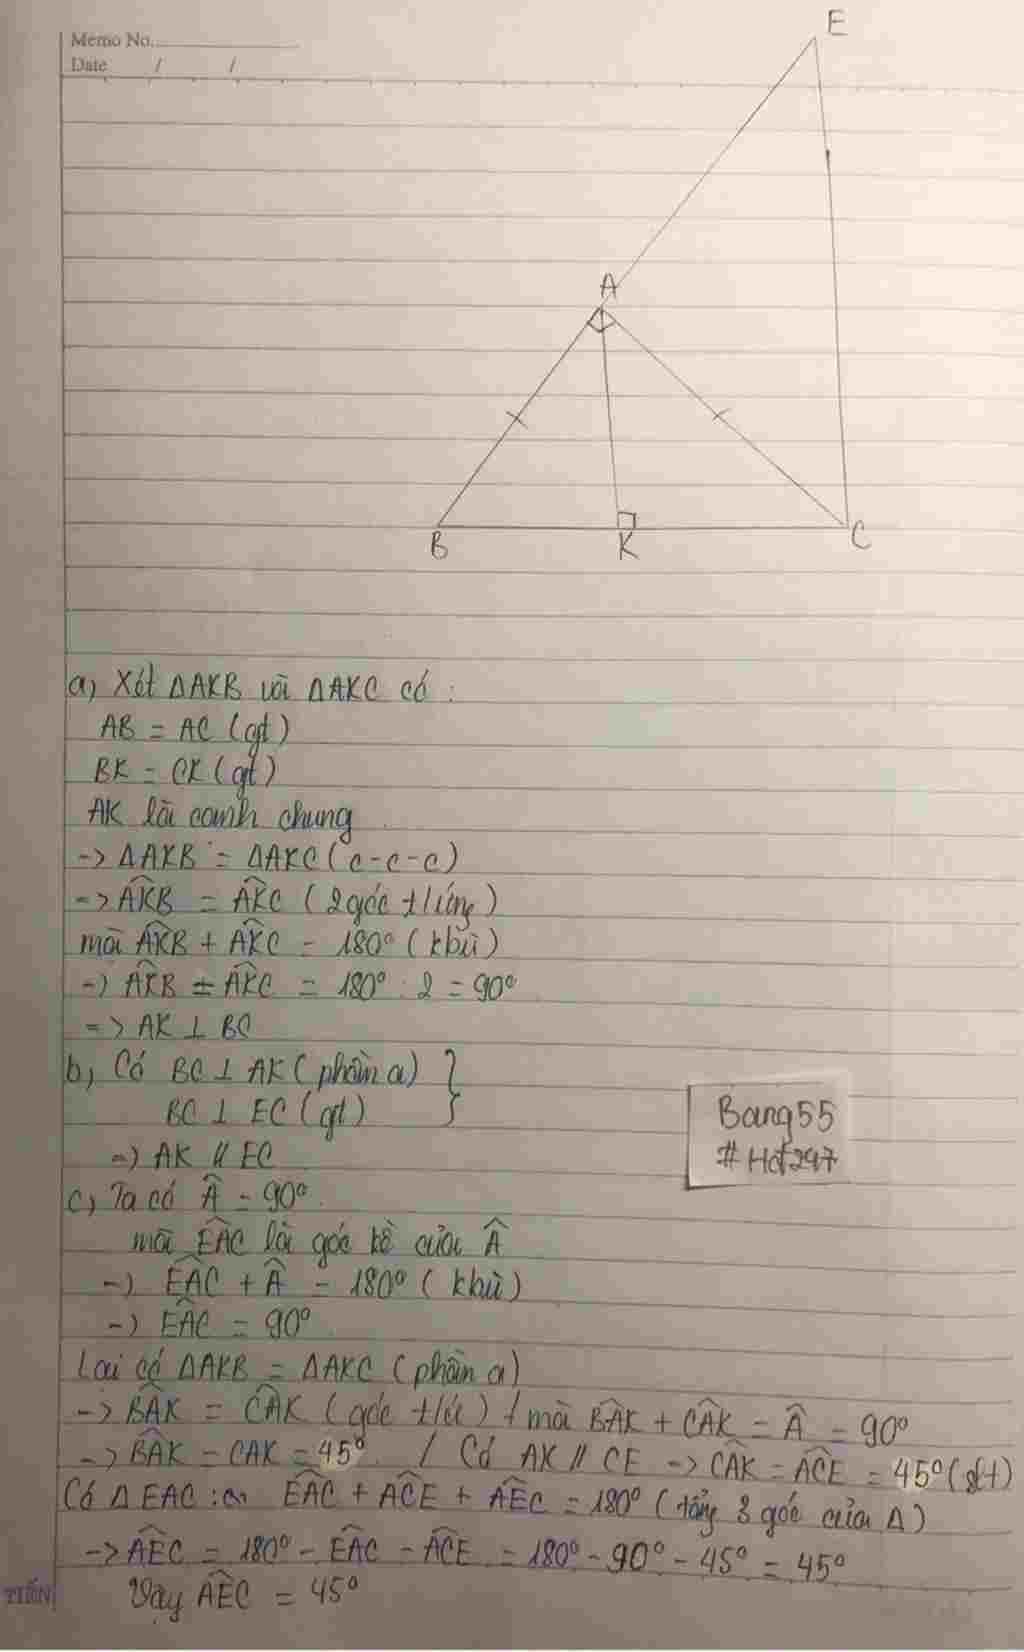 Memo No.
Date / /
E
A
B
K
C
a, Xét ΔAKB và ΔAKC có :
AB = AC (gt)
BK = CK (gt)
AK là cạnh chung
-> ΔAKB = ΔAKC (c-c-c)
-> \widehat{AKB} = \widehat{AKC} (2 góc t/ứng)
mà \widehat{AKB} + \widehat{AKC} = 180° (kbù)
-> \widehat{AKB} = \widehat{AKC} = 180° : 2 = 90°
=> AK ⊥ BC
b, Có BC ⊥ AK (phần a) }
BC ⊥ EC (gt)
=> AK // EC
c, Ta có \widehat{A} = 90°
mà \widehat{EAC} là góc kề của \widehat{A}
-> \widehat{EAC} + \widehat{A} = 180° (kbù)
-> \widehat{EAC} = 90°
Lại có ΔAKB = ΔAKC (phần a)
-> \widehat{BAK} = \widehat{CAK} (góc t/ứ) / mà \widehat{BAK} + \widehat{CAK} = \widehat{A} = 90°
-> \widehat{BAK} = CAK = 45° / Có AK // CE -> \widehat{CAK} = \widehat{ACE} = 45° (slt)
Có ΔEAC : \widehat{EAC} + \widehat{ACE} + \widehat{AEC} = 180° (tổng 3 góc của Δ)
-> \widehat{AEC} = 180° - \widehat{EAC} - \widehat{ACE} = 180° - 90° - 45° = 45°
Vậy \widehat{AEC} = 45°
Bang55
#Hđ247
TIẾN